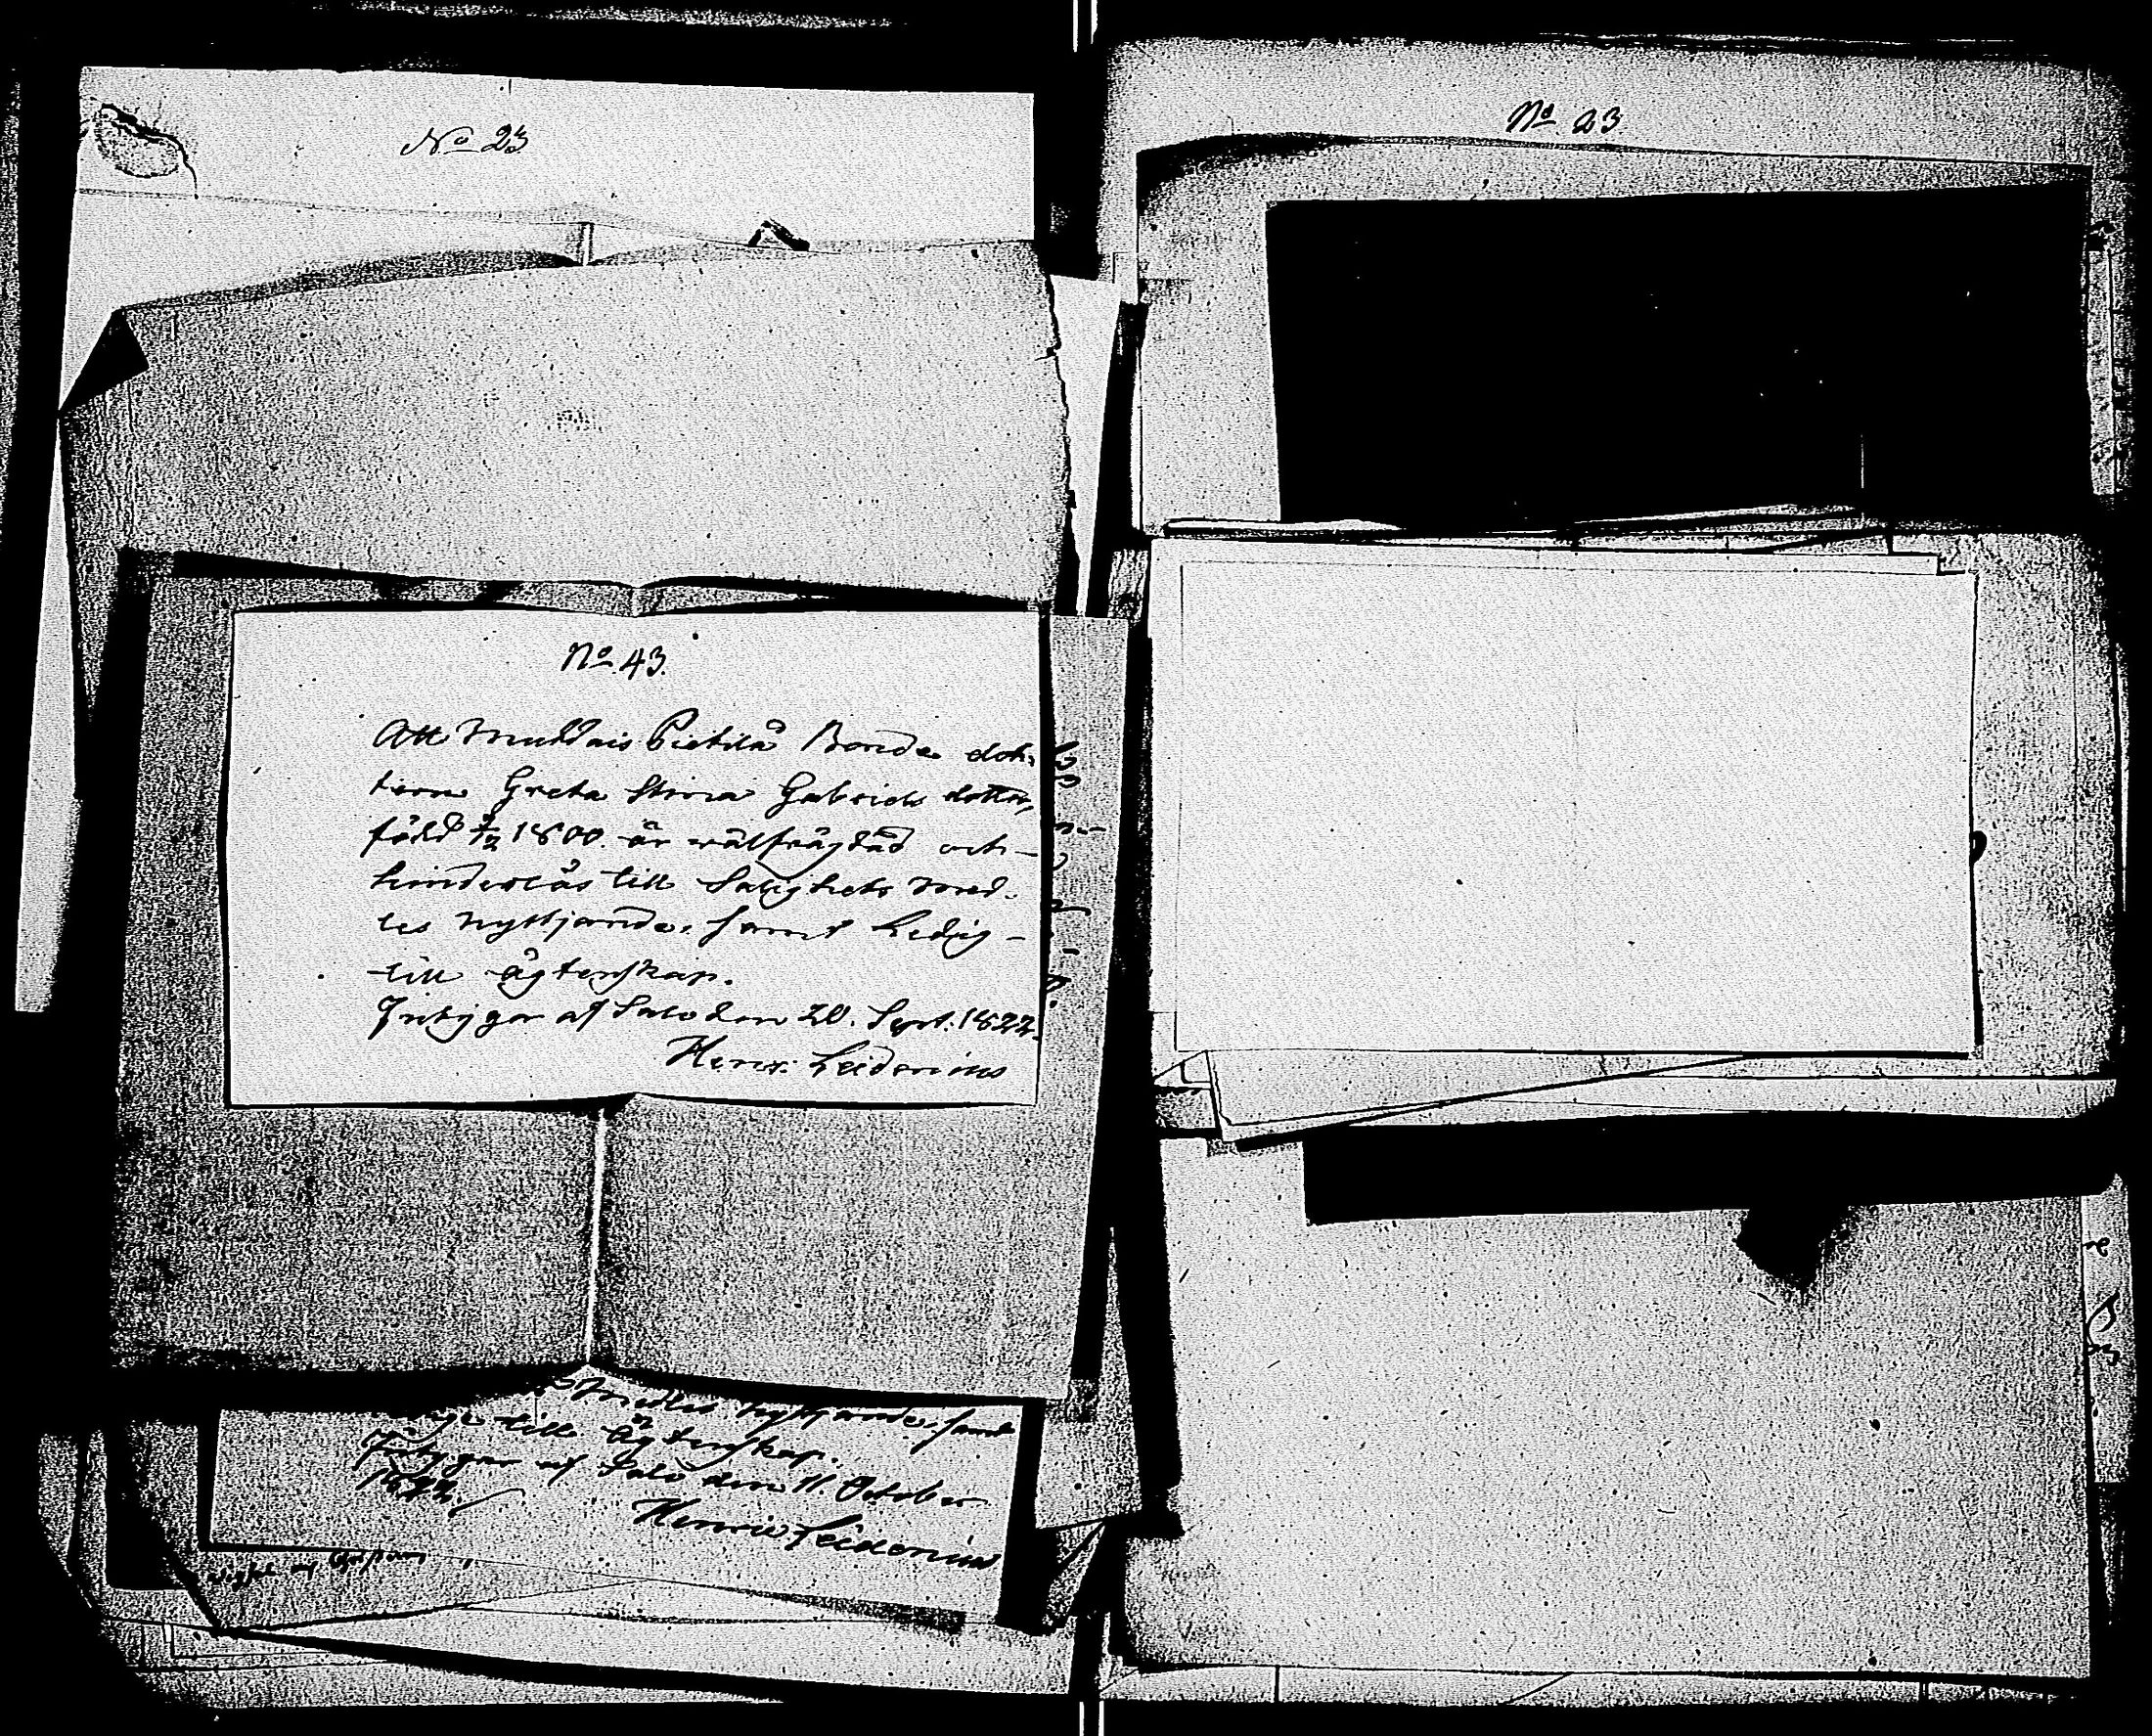 No 23
No 23
No 43.
Att Muldais Pietilä Bonde dot,
tern Greta Stina Gabriels dotter,
född 1800. är wälfrägdad och
hinderlös till Salighets med-
les nyttjande, samt Ledig
till ägtenskap.
Intygar af Salo den 20. Sept: 1822.
Henr: Leidenius
medles nyttjande, samt
till ägtenskap.
Intygar af Salo den 11 October
1822.
Henric Leidenius